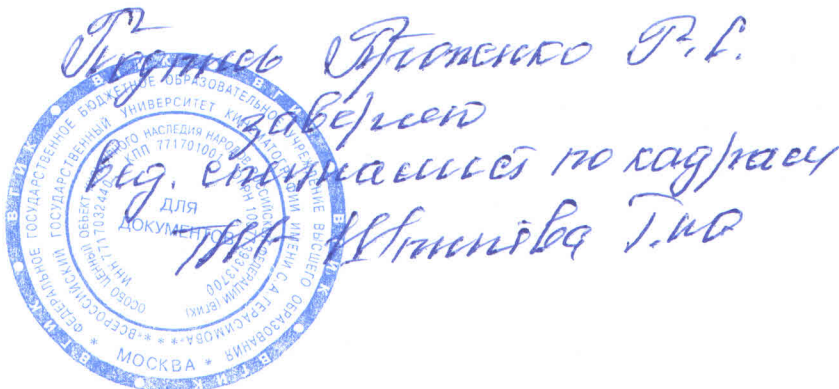 Подпись Проженко Г.С.
заверяю
вед. специалист по кадрам
Т.Ю.
ВГИК
ФЕДЕРАЛЬНОЕ ГОСУДАРСТВЕННОЕ БЮДЖЕТНОЕ ОБРАЗОВАТЕЛЬНОЕ УЧРЕЖДЕНИЕ ВЫСШЕГО ОБРАЗОВАНИЯ
«ВСЕРОССИЙСКИЙ ГОСУДАРСТВЕННЫЙ УНИВЕРСИТЕТ КИНЕМАТОГРАФИИ ИМЕНИ С.А. ГЕРАСИМОВА»
ОСОБО ЦЕННЫЙ ОБЪЕКТ НАСЛЕДИЯ НАРОДОВ РОССИЙСКОЙ ФЕДЕРАЦИИ (ВГИК)
КПП 771701001
ДЛЯ
ДОКУМЕНТОВ
МОСКВА